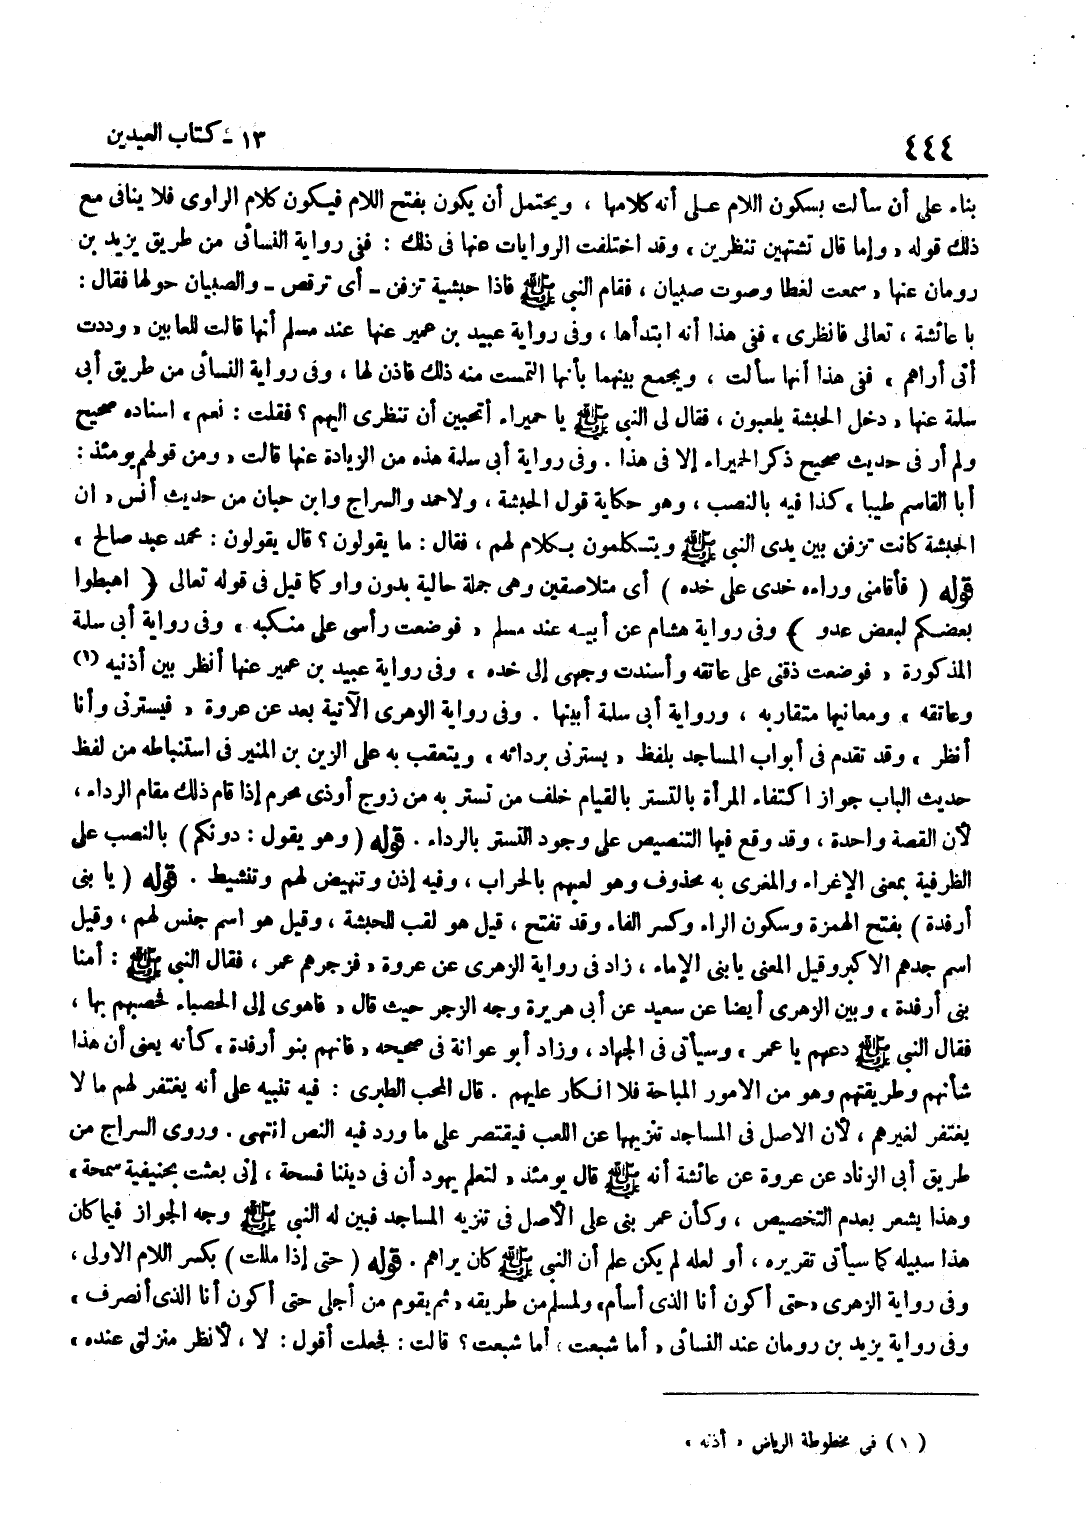 ٤٤٤
١٣ - كتاب العيدين
بناء على أن سألت بسكون اللام على أنه كلامها ، ويحتمل أن يكون بفتح اللام فيكون كلام الراوى فلا ينافى مع
ذلك قوله « وإما قال تشتهين تنظرين » وقد اختلفت الروايات عنها فى ذلك : ففى رواية النسائى من طريق يزيد بن
رومان عنها « سمعت لغطا وصوت صبيان ، فقام النبى ﷺ فاذا حبشية تزفن - أى ترقص - والصبيان حولها فقال :
يا عائشة ، تعالى فانظرى » ففى هذا أنه ابتدأها ، وفى رواية عبيد بن عمير عنها عند مسلم أنها قالت للعابين « وددت
أنى أراهم » ففى هذا أنها سألت ، ويجمع بينهما بأنها التمست منه ذلك فاذن لها ، وفى رواية النسائى من طريق أبى
سلمة عنها « دخل الحبشة يلعبون ، فقال لى النبى ﷺ يا حميراء أتحبين أن تنظرى اليهم ؟ فقلت : نعم » اسناده صحيح
ولم أر فى حديث صحيح ذكر الحميراء إلا فى هذا . وفى رواية أبى سلمة هذه من الزيادة عنها قالت « ومن قولهم يومئذ :
أبا القاسم طيبا » كذا فيه بالنصب ، وهو حكاية قول الحبشة ، ولاحمد والسراج وابن حبان من حديث أنس « ان
الحبشة كانت تزفن بين يدى النبى ﷺ ويتكلمون بكلام لهم ، فقال : ما يقولون ؟ قال يقولون : محمد عبد صالح »
قوله ( فأقامنى وراءه خدى على خده ) أى متلاصقين وهى جملة حالية بدون واو كما قيل فى قوله تعالى ﴿ اهبطوا
بعضكم لبعض عدو ﴾ وفى رواية هشام عن أبيه عند مسلم « فوضعت رأسى على منكبه » وفى رواية أبى سلمة
المذكورة « فوضعت ذقنى على عاتقه وأسندت وجهى إلى خده » وفى رواية عبيد بن عمير عنها أنظر بين أذنيه (١)
وعاتقه » ومعانيها متقاربه ، ورواية أبى سلمة أبينها . وفى رواية الزهرى الآتية بعد عن عروة « فيسترنى وأنا
أنظر » وقد تقدم فى أبواب المساجد بلفظ « يسترنى بردائه » ويتعقب به على الزين بن المنير فى استنباطه من لفظ
حديث الباب جواز اكتفاء المرأة بالتستر بالقيام خلف من تستر به من زوج أو ذى محرم إذا قام ذلك مقام الرداء ،
لأن القصة واحدة ، وقد وقع فيها التنصيص على وجود التستر بالرداء . قوله ( وهو يقول : دونكم ) بالنصب على
الظرفية بمعنى الإغراء والمغرى به محذوف وهو لعبهم بالحراب ، وفيه إذن وتنهيض لهم وتنشيط . قوله ( يا بنى
أرفدة ) بفتح الهمزة وسكون الراء وكسر الفاء وقد تفتح ، قيل هو لقب للحبشة ، وقيل هو اسم جنس لهم ، وقيل
اسم جدهم الاكبر وقيل المعنى يا بنى الإماء ، زاد فى رواية الزهرى عن عروة « فزجرهم عمر ، فقال النبى ﷺ : أمنا
بنى أرفدة » وبين الزهرى أيضا عن سعيد عن أبى هريرة وجه الزجر حيث قال « فاهوى إلى الحصباء فحصبهم بها ،
فقال النبى ﷺ دعهم يا عمر » وسيأتى فى الجهاد ، وزاد أبو عوانة فى صحيحه « فانهم بنو أرفدة » كأنه يعنى أن هذا
شأنهم وطريقتهم وهو من الامور المباحة فلا انكار عليهم . قال المحب الطبرى : فيه تنبيه على أنه يغتفر لهم ما لا
يغتفر لغيرهم ، لأن الاصل فى المساجد تنزيهها عن اللعب فيقتصر على ما ورد فيه النص انتهى . وروى السراج من
طريق أبى الزناد عن عروة عن عائشة أنه ﷺ قال يومئذ « لتعلم يهود أن فى ديننا فسحة ، إنى بعثت بحنيفية سمحة »
وهذا يشعر بعدم التخصيص ، وكأن عمر بنى على الأصل فى تنزيه المساجد فبين له النبى ﷺ وجه الجواز فيما كان
هذا سبيله كما سيأتى تقريره ، أو لعله لم يكن علم أن النبى ﷺ كان يراهم . قوله ( حتى إذا مللت ) بكسر اللام الاولى ،
وفى رواية الزهرى « حتى أكون أنا الذى أسأم » ولمسلم من طريقه « ثم يقوم من أجلى حتى أكون أنا الذى أنصرف »
وفى رواية يزيد بن رومان عند النسائى « أما شبعت ، أما شبعت ؟ قالت : فجعلت أقول : لا ، لأنظر منزلتى عنده »
( ١ ) فى مخطوطة الرياض « أذنه »